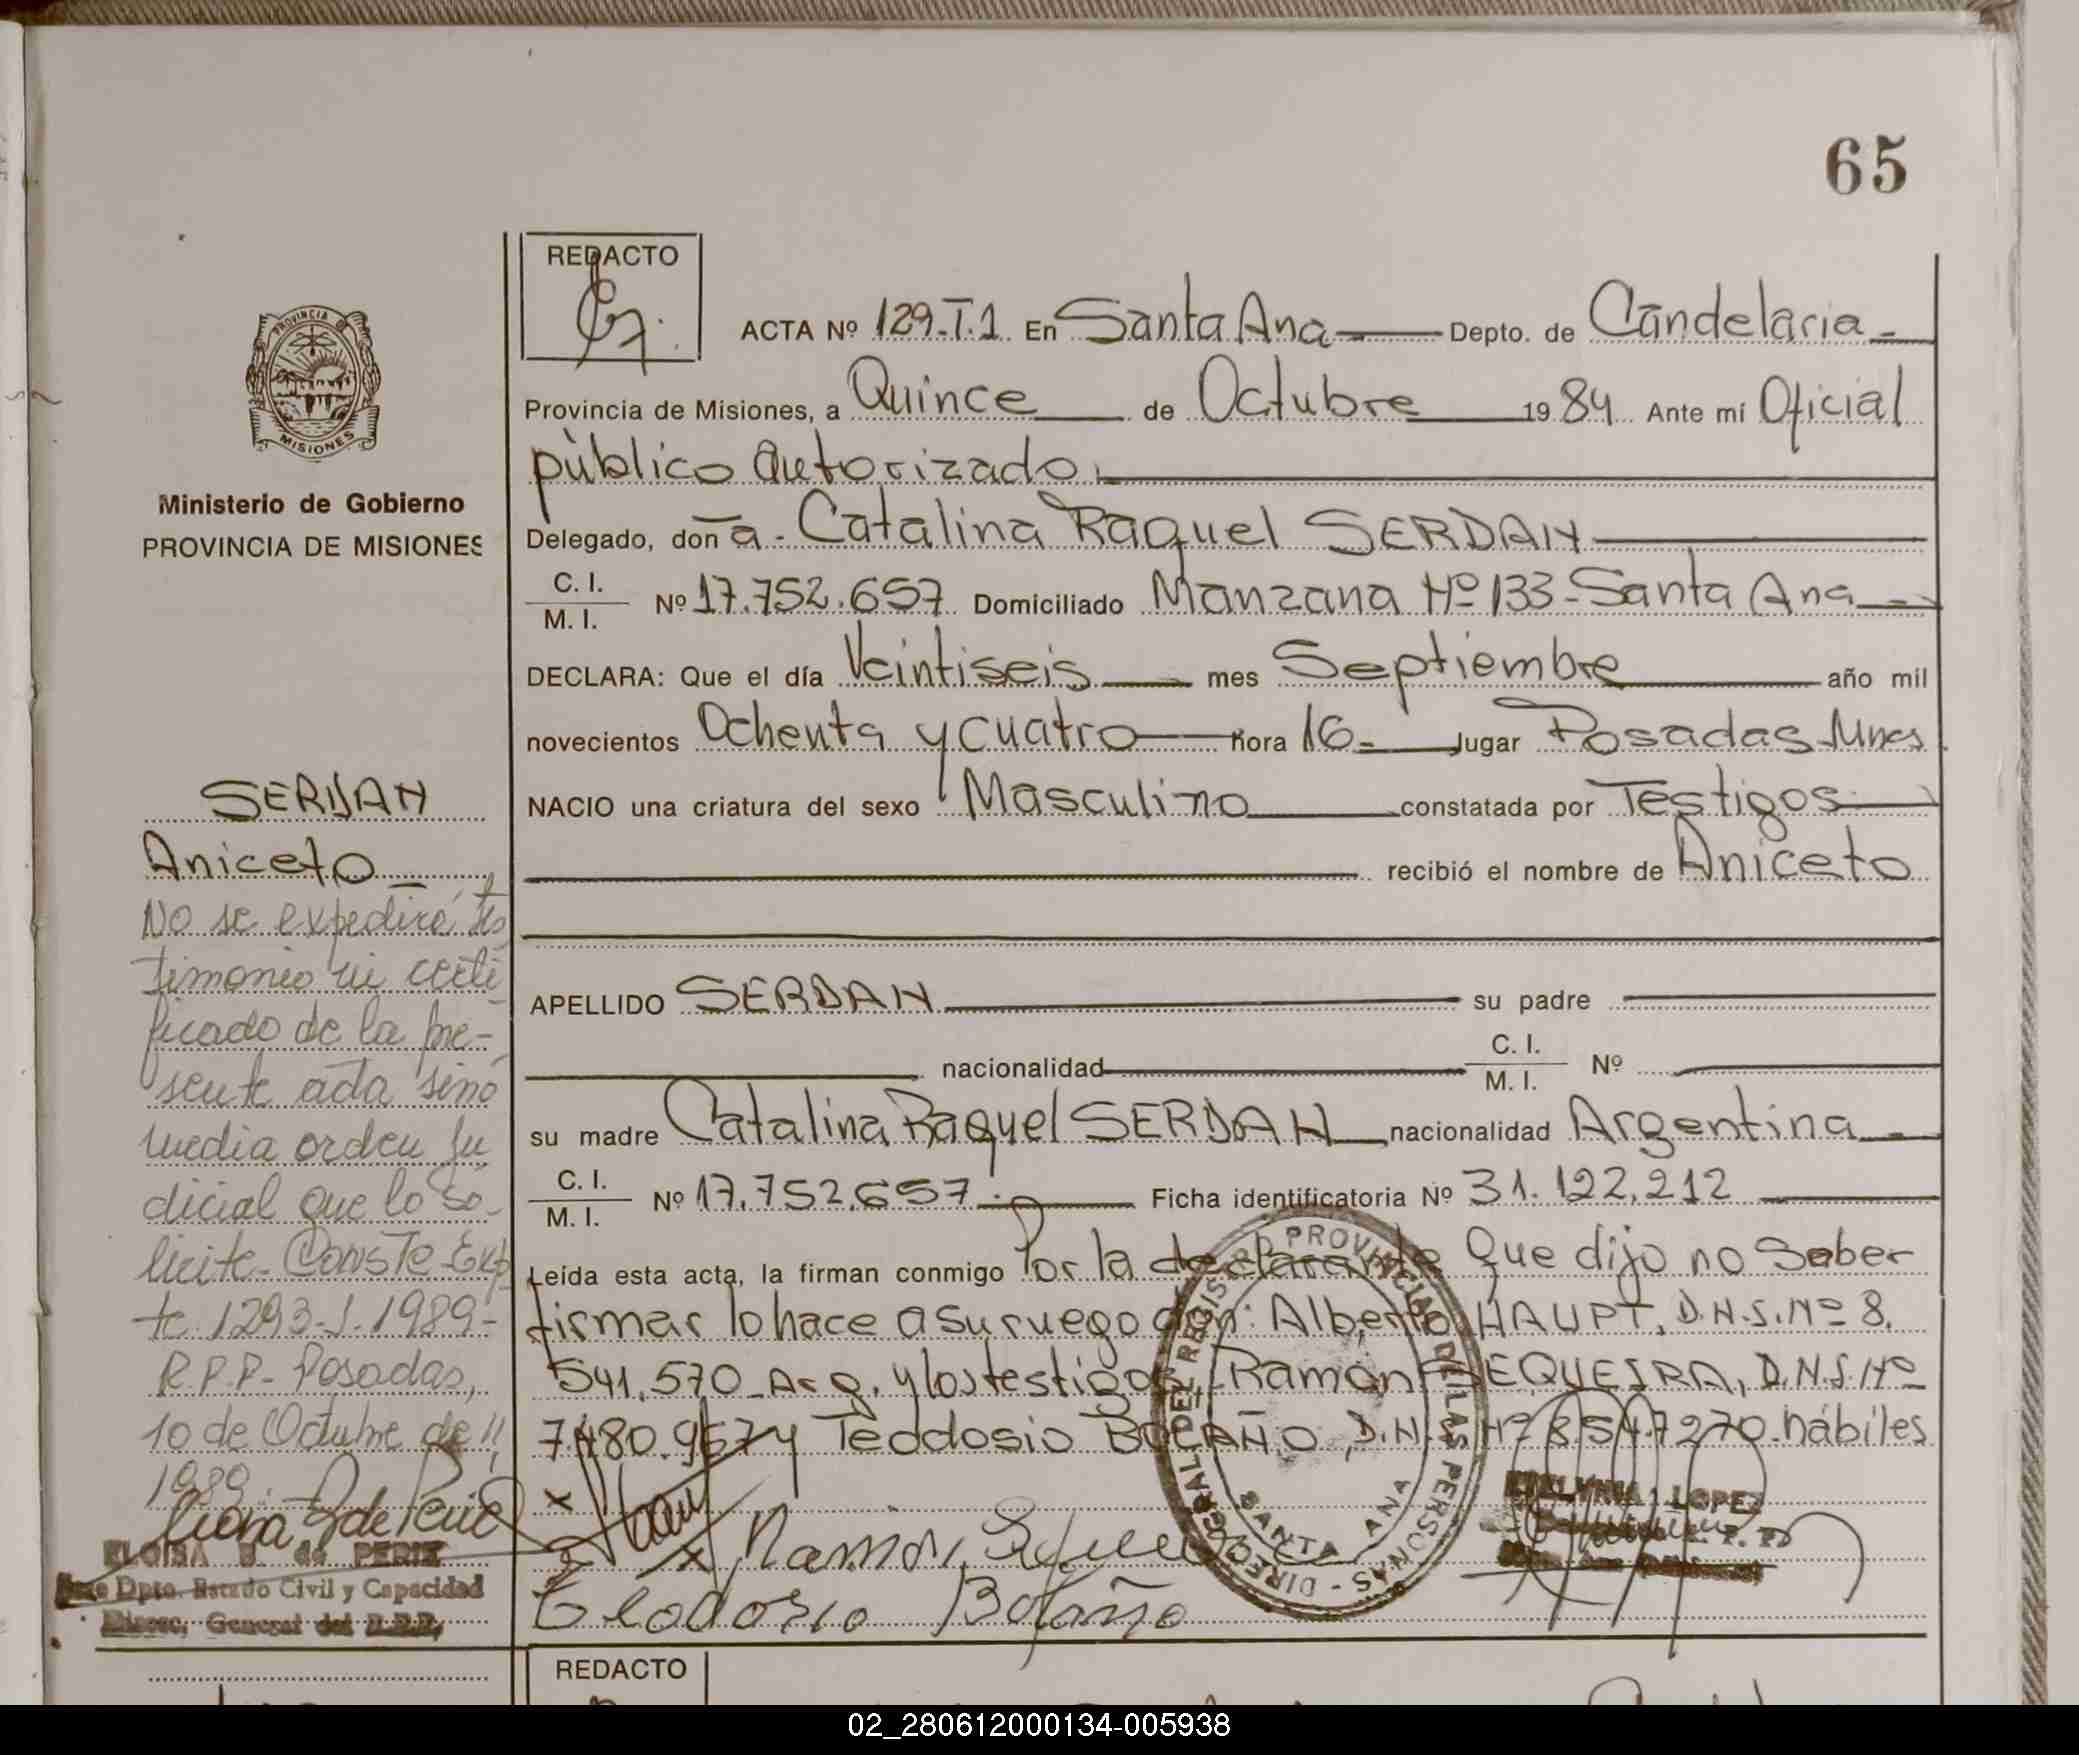 65
REDACTO
ACTA Nº 129-T.1 En Santa Ana Depto. de Candelaria
Provincia de Misiones, a Quince de Octubre 1984 Ante mí Oficial
público autorizado
Delegado, doña Catalina Raquel SERDAN
C. I.
M. I.
Nº 17.752.657 Domiciliado Manzana Nº 133-Santa Ana
DECLARA: Que el día Veintiseis mes Septiembre año mil
novecientos Ochenta y cuatro hora 16 lugar Posadas Mnes
NACIO una criatura del sexo Masculino constatada por Testigos
recibió el nombre de Aniceto
APELLIDO SERDAN su padre
nacionalidad C. I. Nº
M. I.
su madre Catalina Raquel SERDAN nacionalidad Argentina
C. I.
M. I.
Nº 17.752.657 Ficha identificatoria Nº 31.122.212
Leída esta acta, la firman conmigo Por la declarante que dijo no Saber
firmar lo hace a su ruego don: Alberto HAUPT, D.N.I. Nº 8.
541.570-Arg. y los testigos Ramon SEQUEIRA, D.N.I. Nº
7.480.967 y Teodosio BOLAÑO, D.N.I. Nº 8.547.270 hábiles
Ramón
Teodosio Bolaño
PROVINCIA DE
MISIONES
Ministerio de Gobierno
PROVINCIA DE MISIONES
SERDAN
Aniceto
No se expedirá tes
timonio ni certi
ficado de la pre-
sente acta sino
media orden ju
dicial que lo so-
licite. Conste Exp
te. 1293-S-1989-
R.P.P- Posadas,
10 de Octubre de
1989.
ELOISA B. de PERIE
Dpto. Estado Civil y Capacidad
General del R.P.P.
DIRECCION GENERAL DEL REGISTRO PROVINCIAL DE LAS PERSONAS
SANTA ANA
LOPEZ
REDACTO
02_280612000134-005938